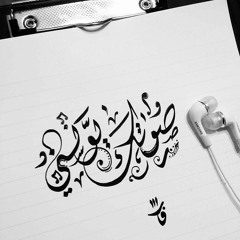 صوتك يؤنسني